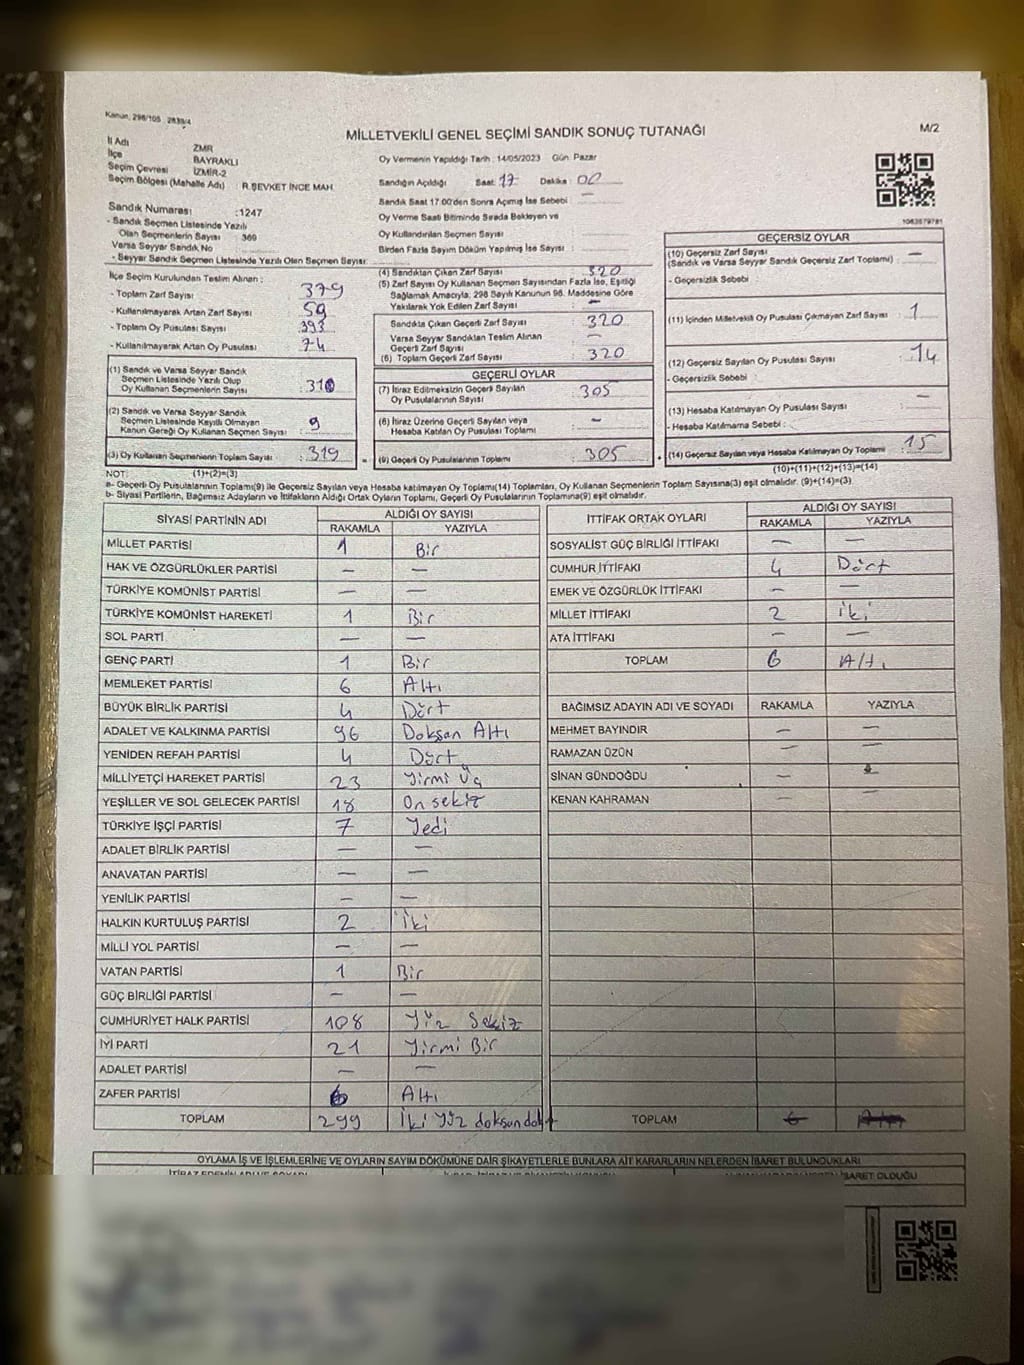 Kanun, 298/105 2839/4
MİLLETVEKİLİ GENEL SEÇİMİ SANDIK SONUÇ TUTANAĞI
M/2
İl Adı ZMR
İlçe BAYRAKLI
Seçim Çevresi İZMİR-2
Seçim Bölgesi (Mahalle Adı) : R.ŞEVKET İNCE MAH.
Sandık Numarası :1247
- Sandık Seçmen Listesinde Yazılı
Olan Seçmenlerin Sayısı : 369
Varsa Seyyar Sandık No
- Seyyar Sandık Seçmen Listesinde Yazılı Olan Seçmen Sayısı:
Oy Vermenin Yapıldığı Tarih : 14/05/2023 Gün: Pazar
Sandığın Açıldığı Saat: 17 Dakika: 00
Sandık Saat 17.00'den Sonra Açılmış İse Sebebi —
Oy Verme Saati Bitiminde Sırada Bekleyen ve
Oy Kullandırılan Seçmen Sayısı
Birden Fazla Sayım Döküm Yapılmış İse Sayısı :
1063579781
İlçe Seçim Kurulundan Teslim Alınan :
- Toplam Zarf Sayısı : 379
- Kullanılmayarak Artan Zarf Sayısı : 59
- Toplam Oy Pusulası Sayısı : 393
- Kullanılmayarak Artan Oy Pusulası : 74
(1) Sandık ve Varsa Seyyar Sandık
Seçmen Listesinde Yazılı Olup
Oy Kullanan Seçmenlerin Sayısı : 310
(2) Sandık ve Varsa Seyyar Sandık
Seçmen Listesinde Kayıtlı Olmayan
Kanun Gereği Oy Kullanan Seçmen Sayısı : 9
(3) Oy Kullanan Seçmenlerin Toplam Sayısı : 319
(4) Sandıktan Çıkan Zarf Sayısı : 320
(5) Zarf Sayısı Oy Kullanan Seçmen Sayısından Fazla İse, Eşitliği
Sağlamak Amacıyla; 298 Sayılı Kanunun 98. Maddesine Göre
Yakılarak Yok Edilen Zarf Sayısı : —
Sandıkta Çıkan Geçerli Zarf Sayısı : 320
Varsa Seyyar Sandıktan Teslim Alınan
Geçerli Zarf Sayısı : —
(6) Toplam Geçerli Zarf Sayısı : 320
GEÇERLİ OYLAR
(7) İtiraz Edilmeksizin Geçerli Sayılan
Oy Pusulalarının Sayısı : 305
(8) İtiraz Üzerine Geçerli Sayılan veya
Hesaba Katılan Oy Pusulası Toplamı : —
= (9) Geçerli Oy Pusulalarının Toplamı : 305
GEÇERSİZ OYLAR
(10) Geçersiz Zarf Sayısı
(Sandık ve Varsa Seyyar Sandık Geçersiz Zarf Toplamı) : —
- Geçersizlik Sebebi :
(11) İçinden Milletvekili Oy Pusulası Çıkmayan Zarf Sayısı : 1
(12) Geçersiz Sayılan Oy Pusulası Sayısı : 14
- Geçersizlik Sebebi :
(13) Hesaba Katılmayan Oy Pusulası Sayısı : —
- Hesaba Katılmama Sebebi :
+ (14) Geçersiz Sayılan veya Hesaba Katılmayan Oy Toplamı : 15
NOT: (1)+(2)=(3)
(10)+(11)+(12)+(13)=(14)
a- Geçerli Oy Pusulalarının Toplamı(9) ile Geçersiz Sayılan veya Hesaba Katılmayan Oy Toplamı(14) Toplamları, Oy Kullanan Seçmenlerin Toplam Sayısına(3) eşit olmalıdır. (9)+(14)=(3)
b- Siyasi Partilerin, Bağımsız Adayların ve İttifakların Aldığı Ortak Oyların Toplamı, Geçerli Oy Pusulalarının Toplamına(9) eşit olmalıdır.
SİYASİ PARTİNİN ADI ALDIĞI OY SAYISI
RAKAMLA YAZIYLA
MİLLET PARTİSİ 1 Bir
HAK VE ÖZGÜRLÜKLER PARTİSİ — —
TÜRKİYE KOMÜNİST PARTİSİ — —
TÜRKİYE KOMÜNİST HAREKETİ 1 Bir
SOL PARTİ — —
GENÇ PARTİ 1 Bir
MEMLEKET PARTİSİ 6 Altı
BÜYÜK BİRLİK PARTİSİ 4 Dört
ADALET VE KALKINMA PARTİSİ 96 Doksan Altı
YENİDEN REFAH PARTİSİ 4 Dört
MİLLİYETÇİ HAREKET PARTİSİ 23 Yirmi Üç
YEŞİLLER VE SOL GELECEK PARTİSİ 18 On sekiz
TÜRKİYE İŞÇİ PARTİSİ 7 Yedi
ADALET BİRLİK PARTİSİ — —
ANAVATAN PARTİSİ — —
YENİLİK PARTİSİ — —
HALKIN KURTULUŞ PARTİSİ 2 İki
MİLLİ YOL PARTİSİ — —
VATAN PARTİSİ 1 Bir
GÜÇ BİRLİĞİ PARTİSİ — —
CUMHURİYET HALK PARTİSİ 108 Yüz Sekiz
İYİ PARTİ 21 Yirmi Bir
ADALET PARTİSİ — —
ZAFER PARTİSİ 6 Altı
TOPLAM 299
İTTİFAK ORTAK OYLARI ALDIĞI OY SAYISI
RAKAMLA YAZIYLA
SOSYALİST GÜÇ BİRLİĞİ İTTİFAKI — —
CUMHUR İTTİFAKI 4 Dört
EMEK VE ÖZGÜRLÜK İTTİFAKI — —
MİLLET İTTİFAKI 2 İki
ATA İTTİFAKI — —
TOPLAM 6 Altı
BAĞIMSIZ ADAYIN ADI VE SOYADI RAKAMLA YAZIYLA
MEHMET BAYINDIR — —
RAMAZAN ÜZÜN — —
SİNAN GÜNDOĞDU —
KENAN KAHRAMAN — —
TOPLAM
OYLAMA İŞ VE İŞLEMLERİNE VE OYLARIN SAYIM DÖKÜMÜNE DAİR ŞİKAYETLERLE BUNLARA AİT KARARLARIN NELERDEN İBARET BULUNDUKLARI